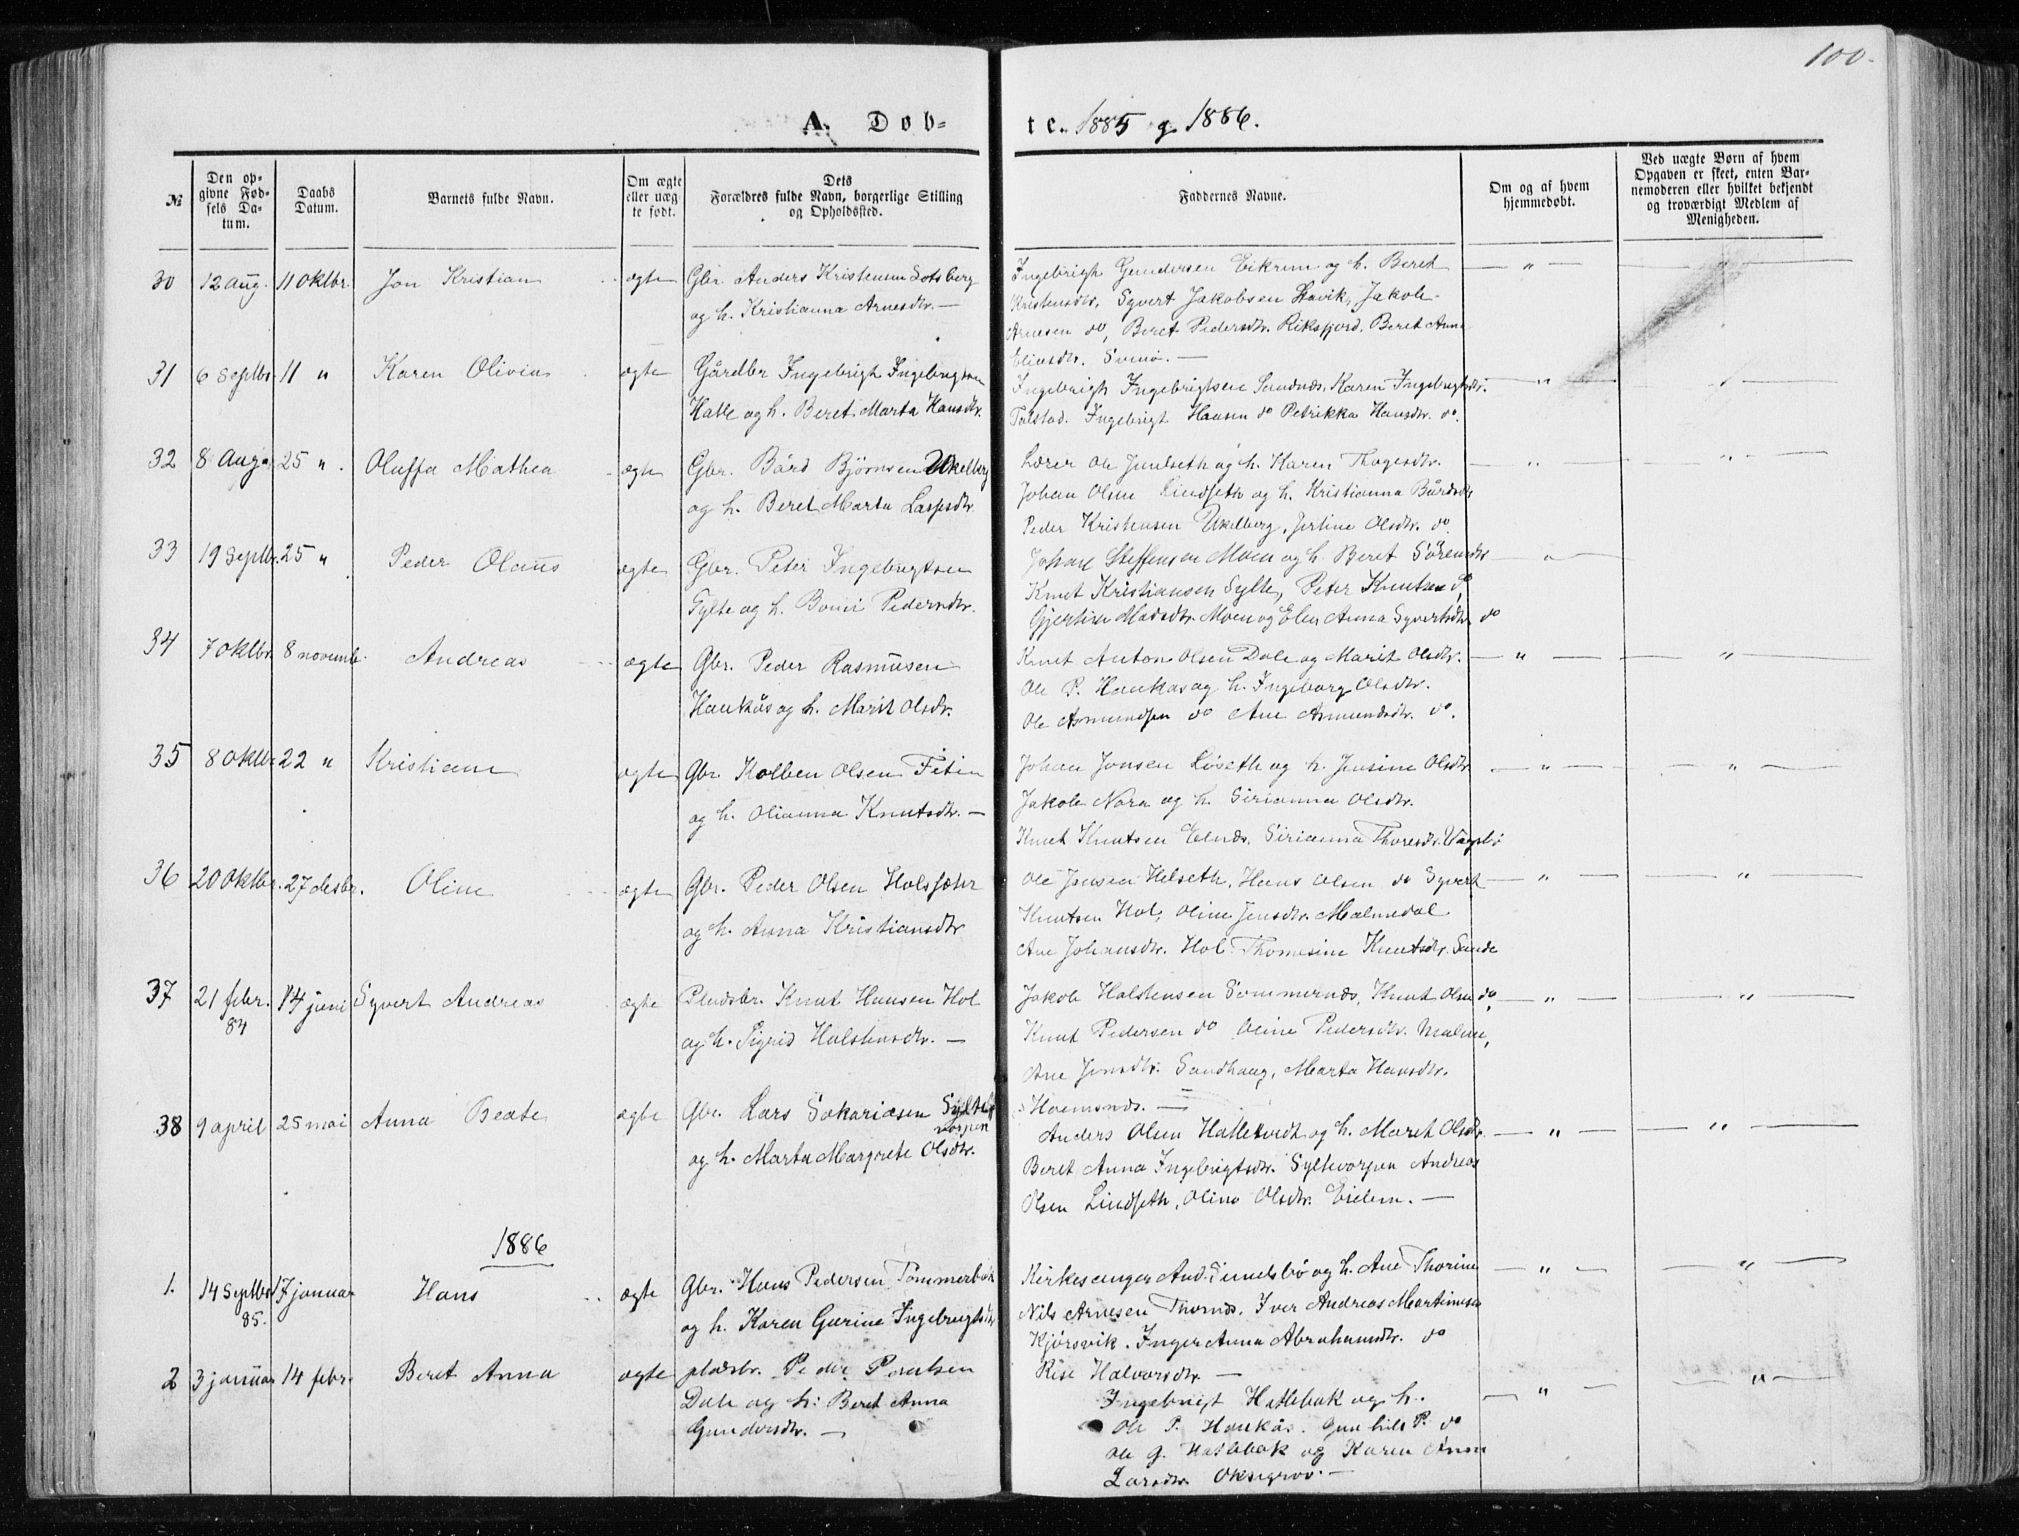 100.
A. Døb-te. 1885 g 1886.
№
Den op-
givne Fød-
sels Da-
tum.
Daabs
Datum.
Barnets fulde Navn.
Om ægte
eller uæg
te født.
Dets
Forældres fulde Navn, borgerlige Stilling
og Opholdssted.
Faddernes Navne.
Om og af hvem
hjemmedøbt.
Ved uægte Børn af hvem
Opgaven er skeet, enten Bar-
nemoderen eller hvilket bekjendt
og troværdigt Medlem af
Menigheden.
30 12 aug. 11 oktbr. Jon Kristian ægte Gbr. Anders Kristensen
og h. Kristianna Arnesdtr. —
Ingebrigt Gundersen Eikrem og h. Beret
Kristensdtr, Syvert Jakobsen Stavik, Jakob
Arnesen do, Beret Pedersdtr. Riksfjord. Beret Anna
Eliasdtr. Svenø. —
31 6 Septbr. 11 " Karen Olivia ægte Gårdbr Ingebrigt Ingebrigtsen
Hatle og h. Beret Marta Hansdtr.
Ingebrigt Ingebrigtsen Sandnes, Karen Ingebrigtsdtr.
Talstad. Ingebrigt Hansen do Petrikka Hansdtr. do.
32 8 Aug. 25 " Oluffa Mathea ægte Gbr. Bård Bjørnsen Ukelberg
og h. Beret Marta Larsdtr.
Lærer Ole Julseth og h. Karen Thogersdtr.
Johan Olsen Lindseth og h. Kristianna Bårdsdtr
Peder Kristensen Ukelberg, Jertine Olsdtr. do
33 19 Septbr. 25 " Peder Olaus ægte Gbr. Peter Ingebrigtsen
Sylte og h. Pedersdtr.
Johan Steffensen Moen og h. Beret Sørensdtr
Knut Kristiansen Sylte, Peter Knutsen do,
Gjertine Madsdtr. Moen og Elen Anna Syvertsdtr. do
34 7 oktbr. 8 novemb. Andreas ægte Gbr. Peder Rasmussen
Haukås og h. Marit Olsdtr.
Knut Anton Olsen Dale og Marit Olsdtr.
Ole P. Haukas og h. Ingeborg Olsdtr.
Ole Asmundsen do Ane Asmundsdtr. do.
35 8 oktbr. 22 " Kristiane ægte Gbr. Kolben Olsen
og h. Olianna Knutsdtr. —
Johan Jonsen Løseth og h. Jensine Olsdtr
Jakob Nora og h. Sirianna Olsdtr.
Knut Knutsen Elnæs. Sirianna Thoresdtr. Vågsbø
36 20 Oktbr. 27 desbr. Oline ægte Gbr. Peder Olsen Holssæter
og h. Anna Kristiansdtr
Ole Jensen Helseth, Hans Olsen do Syvert
Knutsen Hol, Oline Jensdtr. Malmedal
Ane Johansdtr. Hol. Thomasine Knutsdtr. Sande
37 21 febr. 84 14 juni Syvert Andreas ægte Pladsbr. Knut Hansen Hol
og h. Sigrid Halstensdtr. —
Jakob Halstensen Sommernæs, Knut Olsen do,
Knut Pedersen do Oline Pedersdtr. Malme,
Ane Jonsdtr. Sandhaug, Marta Hansdtr.
Hoemsnæs. —
38 9 april 25 mai Anna Beate ægte Gbr. Lars Sakariasen Sylte-
vorpen
og h. Marta Margrete Olsdtr.
Anders Olsen Hattekvedt og h. Maret Olsdtr.
Beret Anna Ingebrigtsdtr. Syltevorpen Andreas
Olsen Lindseth, Olina Olsdtr. Eidem. —
1886
1. 14 Septbr 85. 17 januar Hans ægte Gbr. Hans Pedersen Tømmerbak
og h. Karen Gurine Ingebrigtsdtr
Kirkesanger And. Sundsbø og h. Ane Thorine
Nils Arnesen Thornæs. Iver Andreas Martinusen
Kjørsvik. Inger Anna Abrahamsdtr. do
Rise Halvorsdtr. —
2 3 januar 14 febr. Beret Anna ægte pladsbr. Peder Poulsen
Dale og h: Beret Anna
Gundersdtr. —
Ingebrigt Hatlebak og h.
Ole P. Haukås. Gunhild P. do
Ole G. Hatlebak og Karen Anna
Larsdtr. Oksegrov. —